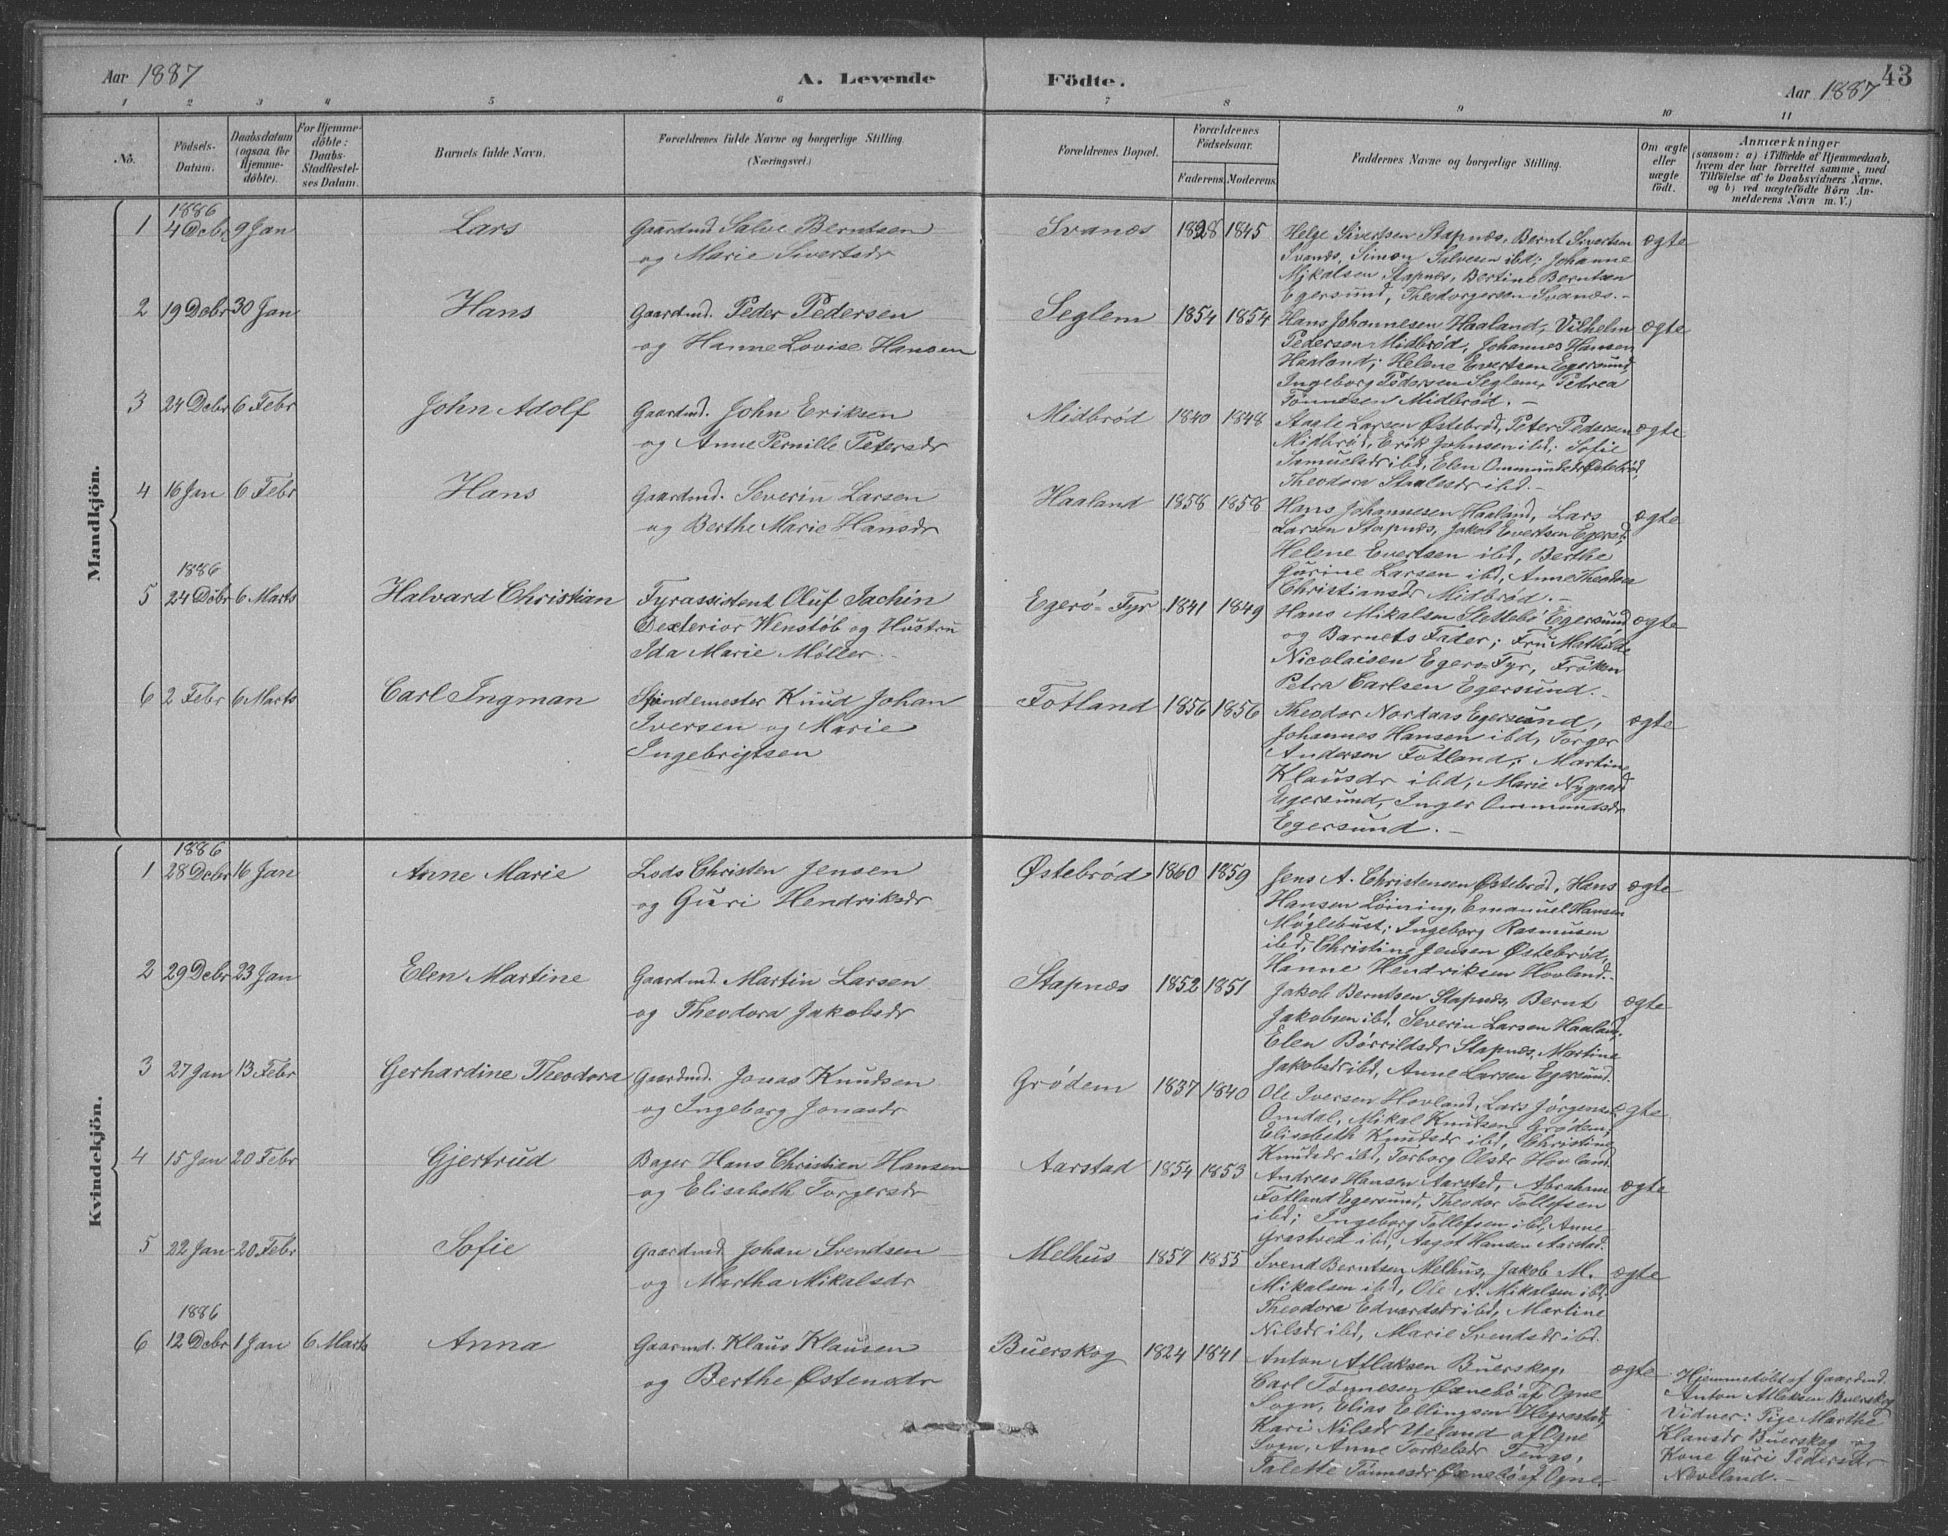 Aar 1887
A. Levende Födte.
43
Aar 1887
1 2 3 4 5 6 7 8 9 10 11
No.
Födsels-Datum.
Daabsdatum (ogsaa for Hjemme-döbte).
For Hjemme-döbte: Daabs-Stadfæstel-ses Datum.
Barnets fulde Navn.
Forældrenes fulde Navne og borgerlige Stilling. (Næringsvei.)
Forældrenes Bopæl.
Forældrenes Födselsaar.
Faderens. Moderens.
Faddernes Navne og borgerlige Stilling.
Om ægte eller uægte födt.
Anmærkninger
(saasom: a) i Tilfælde af Hjemmedaab,
hvem der har forrettet samme, med
Tilföielse af to Daabsvidners Navne,
og b) ved uægtefödte Börn An-
melderens Navn m. V.)
Mandkjön.
1886
1 4 Debr 9 Jan Lars Gaardmd Salve Berntsen Svanæs 1828 1845 Helge Sivertsen Stapnæs, Bernt Sivertsen ægte
og Marie Sivertsdr
Svanæs, Simon Salvesen ibd; Johanne
Mikalsen Stapnæs, Bertine Berntsen
Egersund, Theodor Svanæs.-
2 19 Debr 30 Jan Hans Gaardmd. Peder Pedersen Seglem 1854 1854 Hans Johannesen Haaland, Vilhelm ægte
og Hanne Lovise Hansen
Pedersen Midbrød, Johannes Hansen
Haaland; Helene Evertsen Egersund,
Ingeborg Pedersen Seglem, Petrea
Tønnesen Midbrød.-
3 24 Debr 6 Febr John Adolf Gaardmd. John Eriksen Midbrød 1840 1848 Staale Larsen Østebrød, Peter Pedersen ægte
og Anne Pernille Petersdr
Midbrød, Erik Johnsen ibd; Sofie
Samuelsdr ibd, Elen Ommundsdr Østebrød,
Theodora Staalesdr ibd.-
4 16 Jan 6 Febr Hans Gaardmd. Severin Larsen Haaland 1858 1858 Hans Johannesen Haaland, Lars ægte
og Berthe Marie Hansdr
Larsen Stapnæs, Jakob Evertsen Egersd,
Helene Evertsen ibd, Berthe
Gurine Larsen ibd, Anne Theodora
Christiansdr Midbrød.-
1886
5 24 Debr 6 Marts Halvard Christian Fyrassistent Oluf Jachin Egerø-Fyr 1841 1849 Hans Mikalsen Slettebø Egersund ægte
Dexterior Wenstøb og Hustru
Ida Marie Møller.
og Barnets Fader; Fru Mathilde
Nicolaisen Egerø-Fyr, Frøken
Petra Carlsen Egersund.-
6 2 Febr 6 Marts Carl Ingman Spindemester Knud Johan Fotland 1856 1856 Theodor Nordaas Egersund, ægte
Iversen og Marie
Ingebrigtsen
Johannes Hansen ibd, Torger
Andersen Fotland; Martine
Klausdr ibd, Marie Nygaard
Egersund, Inger Ommundsdr
Egersund.-
Kvindekjön.
1886
1 28 Debr 16 Jan Anne Marie Lods Christen Jensen Østebrød 1860 1859 Jens A. Christensen Østebrød, Hans ægte
og Guri Hendriksdr
Hansen Løining, Emanuel Hansen
Møglebust; Ingeborg Rasmusen
ibd, Christine Jensen Østebrød,
Hanne Hendriksen Hovland.-
2 29 Debr 23 Jan Elen Martine Gaardmd. Martin Larsen Stapnæs 1852 1851 Jakob Berntsen Stapnæs, Bernt ægte
og Theodora Jakobsdr
Jakobsen ibd, Severin Larsen Haaland;
Elen Børrildsdr Stapnæs, Martina
Jakobsdr ibd, Anne Larsen Egersund.
3 27 Jan 13 Febr Gerhardine Theodora Gaardmd. Jonas Knudsen Grødem 1837 1840 Ole Iversen Hovland, Lars Jørgensen ægte
og Ingeborg Jonasdr
Omdal, Mikal Knudsen Grødem;
Elisabeth Knudsdr ibd, Christine
Knudsdr ibd, Torborg Olsdr Hovland.
4 15 Jan 20 Febr Gjertrud Bager Hans Christian Hansen Aarstad 1854 1853 Andreas Hansen Aarstad, Abraham ægte
og Elisabeth Torgersdr
Fotland Egersund, Theodor Tollefsen
ibd; Ingeborg Tollefsen ibd, Anne
Grastveit ibd, Aagot Hansen Aarstad.
5 22 Jan 20 Febr Sofie Gaardmd Johan Svendsen Melhus 1857 1855 Svend Berntsen Melhus, Jakob M. ægte
og Martha Mikalsdr
Mikalsen ibd, Ole A. Mikalsen ibd,
Theodora Edvardsdr ibd, Martine
Nilsdr ibd, Marie Svendsdr ibd.
1886
6 12 Debr 1 Jan 6 Marts Anna Gaarmd. Klaus Klausen Buerskog 1824 1841 Anton Atlaksen Buerskog, ægte
og Berthe Østensdr
Carl Tønnesen Øxnebø af Ogne
Sogn, Elias Ellingsen Hegrestad,
Kari Nilsdr Ueland af Ogne
Sogn, Anne Torkelsdr Tengs,
Talette Tønnesdr Øxnebø af Ogne.
Hjemmedøbt af Gaardmd.
Anton Atlaksen Buerskog
Vidner: Pige Marthe
Klausdr Buerskog og
Kone Guri Pedersdr
Noveland.-